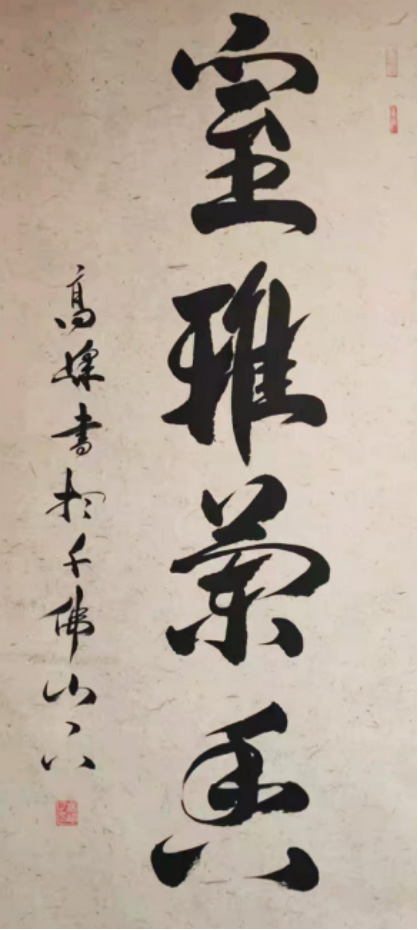 室雅蘭香
高 書於千佛山下